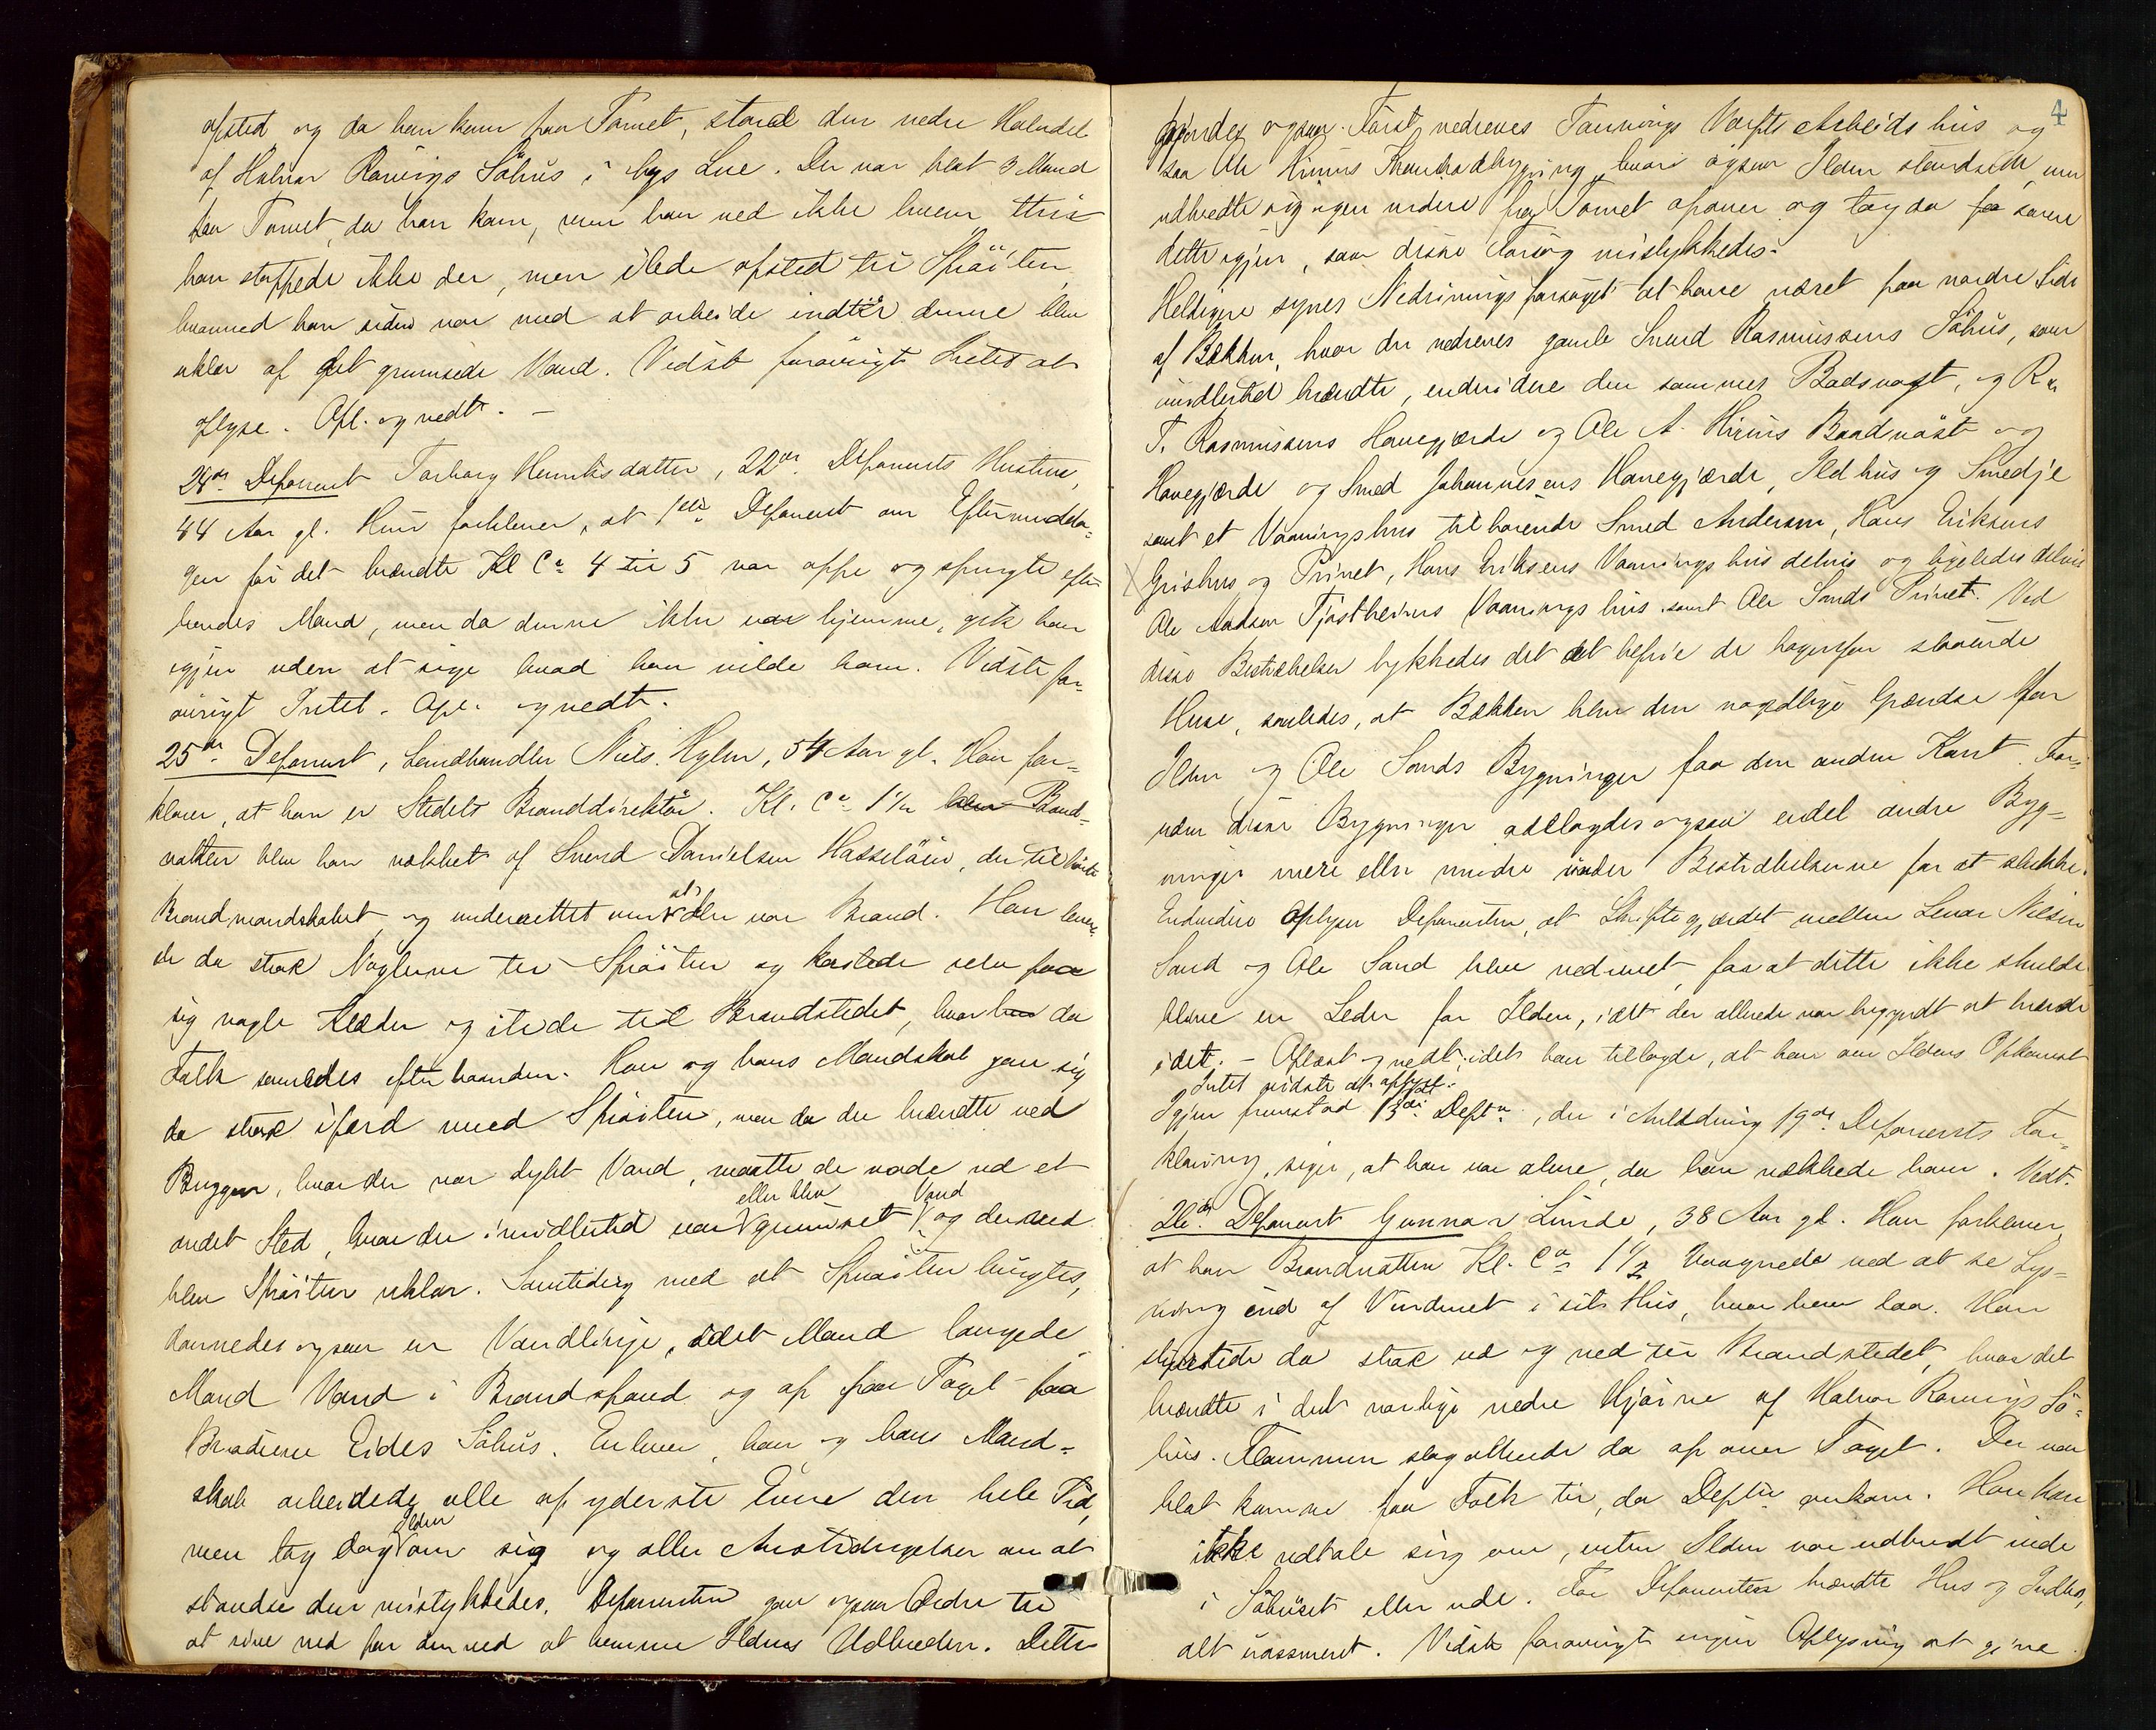 afsted og da han kom paa Tomet, stod den nedre Halvdel
af Halvor Rønings Søhus i lys Lue. Der var blot 3 Mand
paa Tomet, da han kom, men han ved ikke hvem, thi
han stoppede ikke der, men ilede afsted til Sprøiten,
hvormed han siden var med at arbeide indtil denne blev
uklar af det grumsede Vand. Vidste forøvrigt Intet at
oplyse. Opl. og vedt. –
24de Deponent Torborg Henriksdatter, 22de Deponents Hustru,
44 Aar gl. Hun forklarer, at 1ste Deponent om Eftermidda-
gen før det brændte Kl Ca 4 til 5 var oppe og spurgte efter
hendes Mand, men da denne ikke var hjemme, gik han
igjen uden at sige hvad han vilde ham. Vidste for-
øvrigt Intet. Opl. og vedt.
25de Deponent, Landhandler Niels Nylen, 54 Aar gl. Han for-
klarer, at han er Stedets Branddirektør. Kl. Ca 1½ blev Brand-
natten blev han vækket af Svend Danielsen Hasseløen, der tilhørte
Brandmandskabet og underrettet om at der var Brand. Han lever-
de da strax Nøglerne til Sprøiten og kastede selv paa
sig nogle Klæder og ilede til Brandstedet, hvor han da
Folk samledes efterhaanden. Han og hans Mandskab gav sig
da strax ifærd med Sprøiten, men da der brændte ved
Bryggen, hvor der var dybt Vand, maatte de vade ud et
eller blev Vand
andet Sted, hvor der imidlertid var grumset og derved
blev Sprøiten uklar. Samtidig med at Sprøiten brugtes,
dannedes ogsaa en Vandlinje, idet Mand langede
Mand Vand i Brandspand og op paa Taget paa
Brødrene Eides Søhus. Enhver, han og hans Mand-
skab arbeidede alle af yderste Evne den hele Tid,
Ilden
men tog dog om sig og alle Anstrengelser om at
standse den mislykkedes. Deponenten gav ogsaa Ordre til
at rive ned for derved at hemme Ildens Udbreden. Dette
4
gjordes ogsaa. Først nedreves Tannings Værfts Arbeidshus og
saa Ole Hinnas Krambodbygning, hvori ogsaa Ilden standsede, men
udbredte sig igjen videre fra Tomet opover og tog da fa sauer
dette igjen, saa disse Forsøg mislykkedes.
Heldigere synes Nedrivningsforsøget at have været paa nordre Side
af Bækken, hvor der nedreves gamle Svend Rasmussens Søhus, som
imidlertid brændte, endvidere den sammes Badsnøst, og R.
T. Rasmussens Havegjærde og Ole A. Hinnas Baadnøst og
Havegjærde og Smed Johannesens Havegjærde, Ildhus og Smedje
samt et Vaaningshus tilhørende Smed Andersen, Hans Eriksens
Grishus og Privet, Hans Eriksens Vaaningshus delvis og ligeledes delvis
Ole Aadsen Tjøstheims Vaaningshus samt Ole Sands Privet. Ved
disse Bestræbelser lykkedes det at befrie de bagenfor staaende
Huse, saaledes, at Bækken blev den nordlige Grændse for
Ilden og Ole Sands Bygninger paa den anden Kant. For-
uden disse Bygninger ødelagdes ogsaa endel andre Byg-
ninger mere eller mindre under Bestræbelserne for at slukke.
Endvidere oplyser Deponenten, at Skiftegjærdet mellem Lenar Nilsen
Sand og Ole Sand blev nedrevet, for at dette ikke skulde
blive en Leder for Ilden, idet der allerede var begyndt at brænde
i det. – Oplæst og vedt. idet han tilføyde, at han om Ildens Opkomst
Intet vidste at oplyse.
Igjen fremstod 13de Deptn, der i Anledning 19de Deponents For-
klaring, siger, at han var alene, da han vækkede ham. Vedt.
26de Deponent Gunnar Linde, 38 Aar gl. Han forklarer,
at han Brandnatten Kl. Ca 1½ vaagnede ved at se Lys-
ning ind af Vinduet i sit Hus, hvor han laa. Han
styrtede da strax ud og ned til Brandstedet, hvor det
brændte i det nordlige nedre Hjørne af Halvor Rønings Sø-
hus. Flammen slog allerede da op over Taget. Der var
blot komne faa Folk til, da Deptn ankom. Han kan
ikke udtale sig om, enten Ilden var udbrudt inde
i Søhuset eller ude. For Deponenten brændte Hus og Indbo,
alt uassureret. Vidste forøvrigt ingen Oplysning at give.